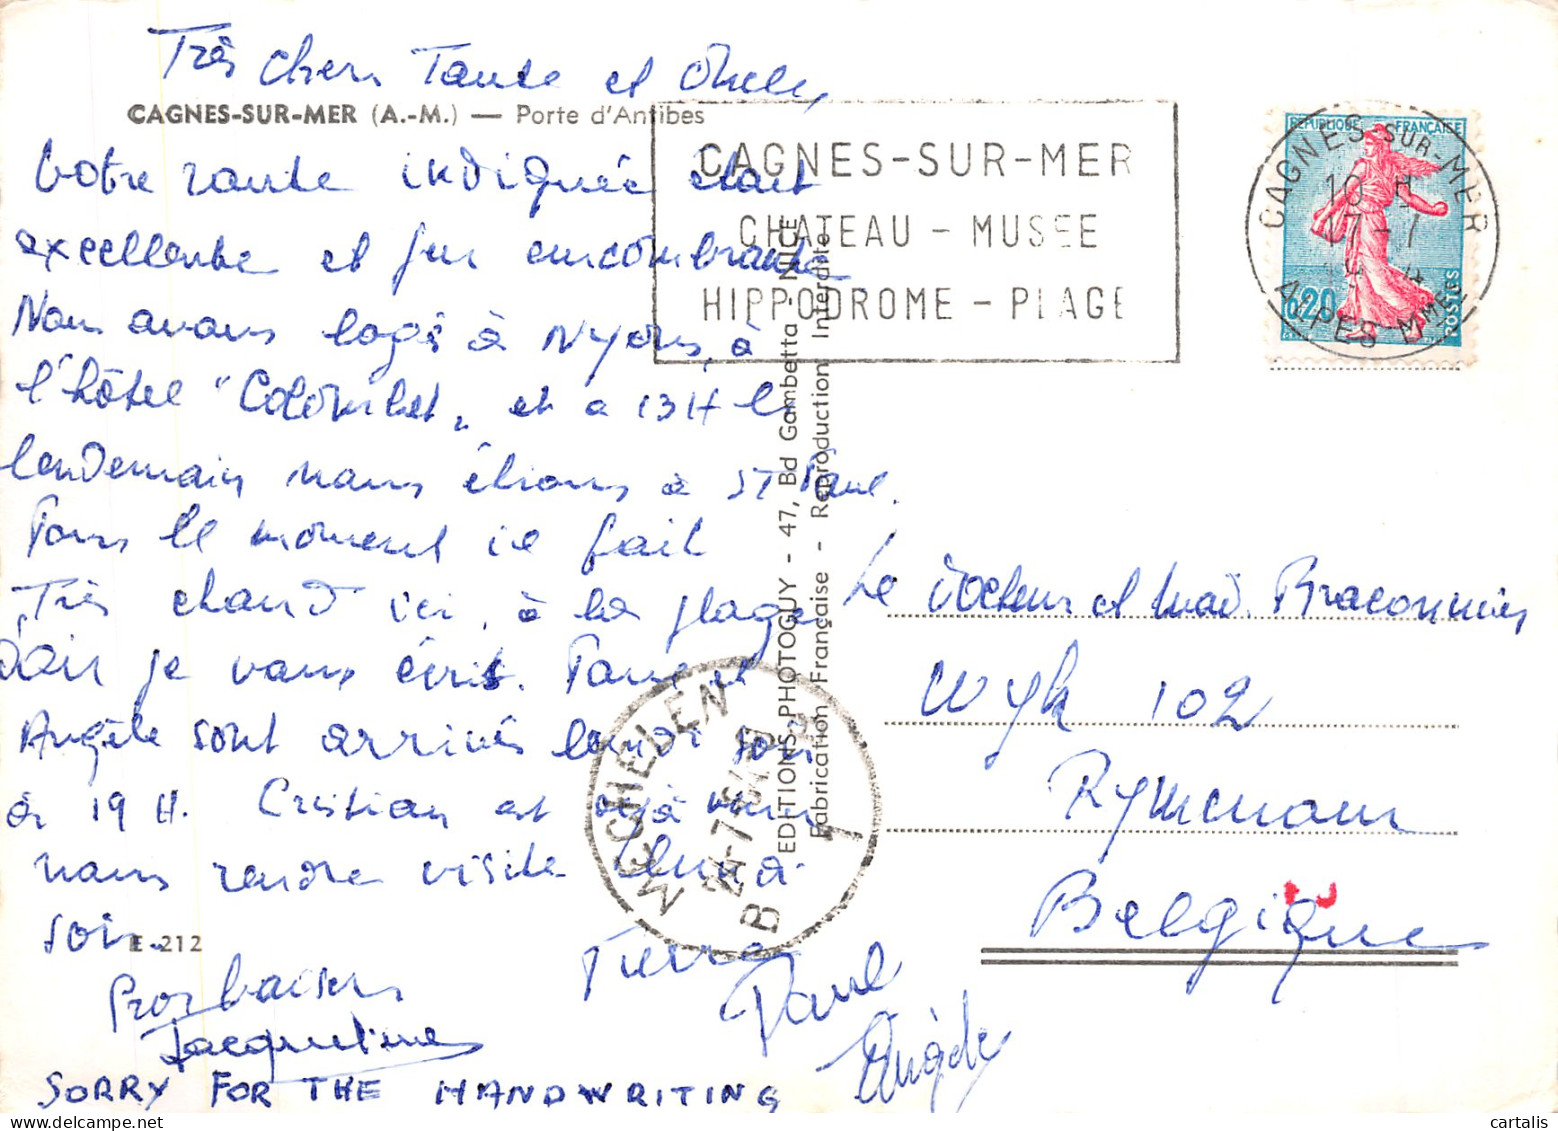 Très chers Tante et Oncle,
CAGNES-SUR-MER (A.-M.) — Porte d'Antibes
Votre route indiquée était
excellente et peu encombrante.
Nous avons logé à Nyons, à
l'hôtel "Colombet" et à 13H le
lendemain nous étions à St Paul.
Tous le moment il fait
Très chaud ici, à la plage
d'où je vous écris. Paul et
Angèle sont arrivés lundi soir
à 19 H. Cristian est déjà venu
nous rendre visite lundi
soir.
E-212
Gros baisers
Jacqueline
Pierre
Paul
Angèle
SORRY FOR THE HANDWRITING
EDITIONS PHOTOGUY - 47, Bd Gambetta - NICE
Fabrication Française - Reproduction Interdite
CAGNES-SUR-MER
CHATEAU - MUSEE
HIPPODROME - PLAGE
REPUBLIQUE FRANÇAISE
0,20
POSTES
CAGNES-SUR-MER
10 H
17-7
ALPES MMES
MECHELEN
B
1
Le Docteur et Mad. Braconnier
Wyk 102
Rymenam
Belgique
cartalis